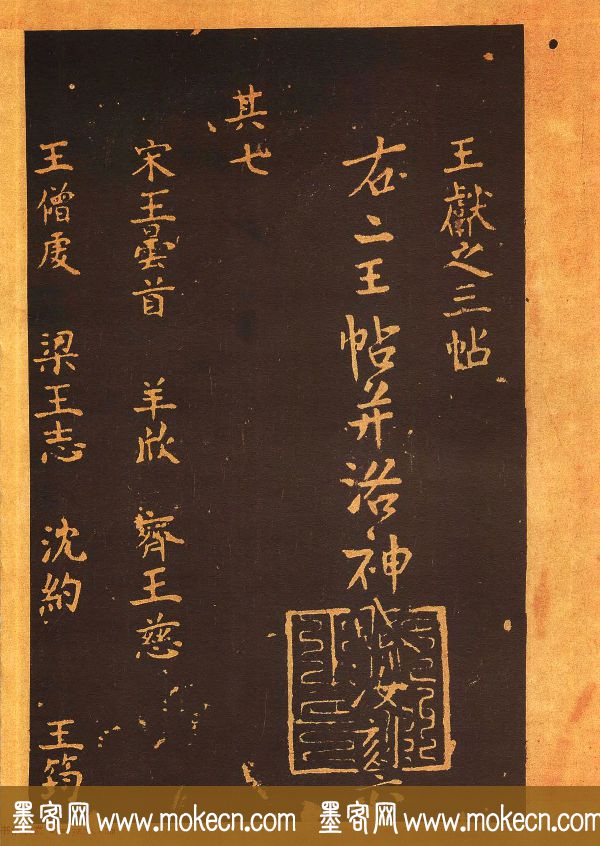 王獻之三帖
右二王帖并洛神
其七
宋王曇首 羊欣 齊王慈
王僧虔 梁王志 沈約 王筠
墨客网 www.mokecn.com 墨客网 www.mokecn.com